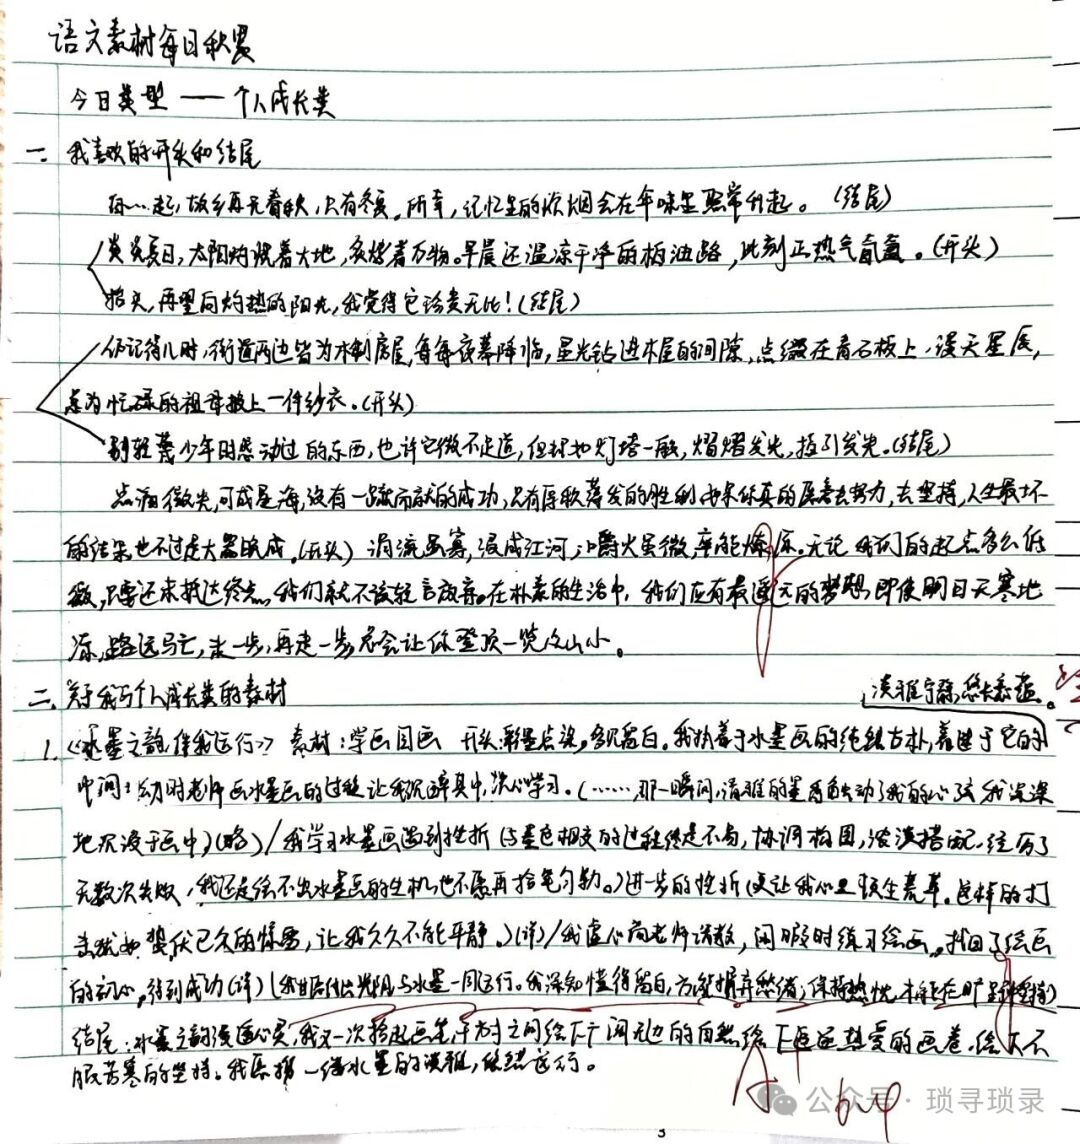 语文素材每日积累
今日类型——个人成长类
一、我喜欢的开头和结尾
起,故乡再无春秋,只有冬夏。所幸,记忆里的炊烟会在年味里照常升起。(结尾)
炎炎夏日,太阳灼烧着大地,炙烤着万物。早晨还温凉干净的柏油路,此刻正热气氤氲。(开头)
抬头,再望向灼热的阳光,我觉得它珍贵无比!(结尾)
仍记得儿时,街道两边皆为木制房屋,每每夜幕降临,星光钻进木屋的间隙,点缀在青石板上,漫天星辰,
总为忙碌的祖母披上一件纱衣。(开头)
别轻蔑少年时感动过的东西,也许它微不足道,但却如灯塔一般,熠熠发光,指引发光。(结尾)
点滴微光,可成星海,没有一蹴而就的成功,只有厚积薄发的胜利 如果你真的愿意去努力,去坚持,人生最坏
的结果也不过是大器晚成。(开头) 涓流虽寡,浸成江河,爝火虽微,卒能燎原。无论我们的起点多么低
微,只要还未抵达终点,我们就不该轻言放弃。在朴素的生活中,我们应有最遥远的梦想,即使明日天寒地
冻,路远马亡,走一步,再走一步,总会让你登顶一览众山小。
二、关于我写个人成长类的素材
淡雅宁静,悠长意蕴。
1.《水墨之韵,伴我远行》 素材:学画国画 开头:彩墨点染,多沉留白。我执着于水墨画的纯朴古朴,着迷于它的
中间:幼时老师画水墨画的过程让我沉醉其中,决心学习。(……,那一瞬间,清雅的墨香触动了我的心弦,我深深
地沉浸于画中)(略)/我学习水墨画遇到挫折(与墨色相交的过程终是不易,协调构图,浓淡搭配,经历了
无数次失败,我还是绘不出水墨画的生机,也不愿再拾笔勾勒。)进一步的挫折(更让我心里顿生荒草。这样的打
击就如蛰伏已久的惊雷,让我久久不能平静。)(详)/我虚心向老师请教,闲暇时练习绘画,找回了绘画
的初心,得到成功(详)(我甘愿付出光阴与水墨一同远行。我深知懂得留白,方能摒弃愁绪;保持热忱,才能在旷野
结尾:水墨之韵浸透心灵,我又一次拾起画笔,于方寸之间绘下广阔无边的自然,绘下遥遥热爱的画卷,绘下不
服苦寒的坚持。我愿携一缕水墨的淡雅,悠然远行。
A+
公众号·琐寻琐录
3